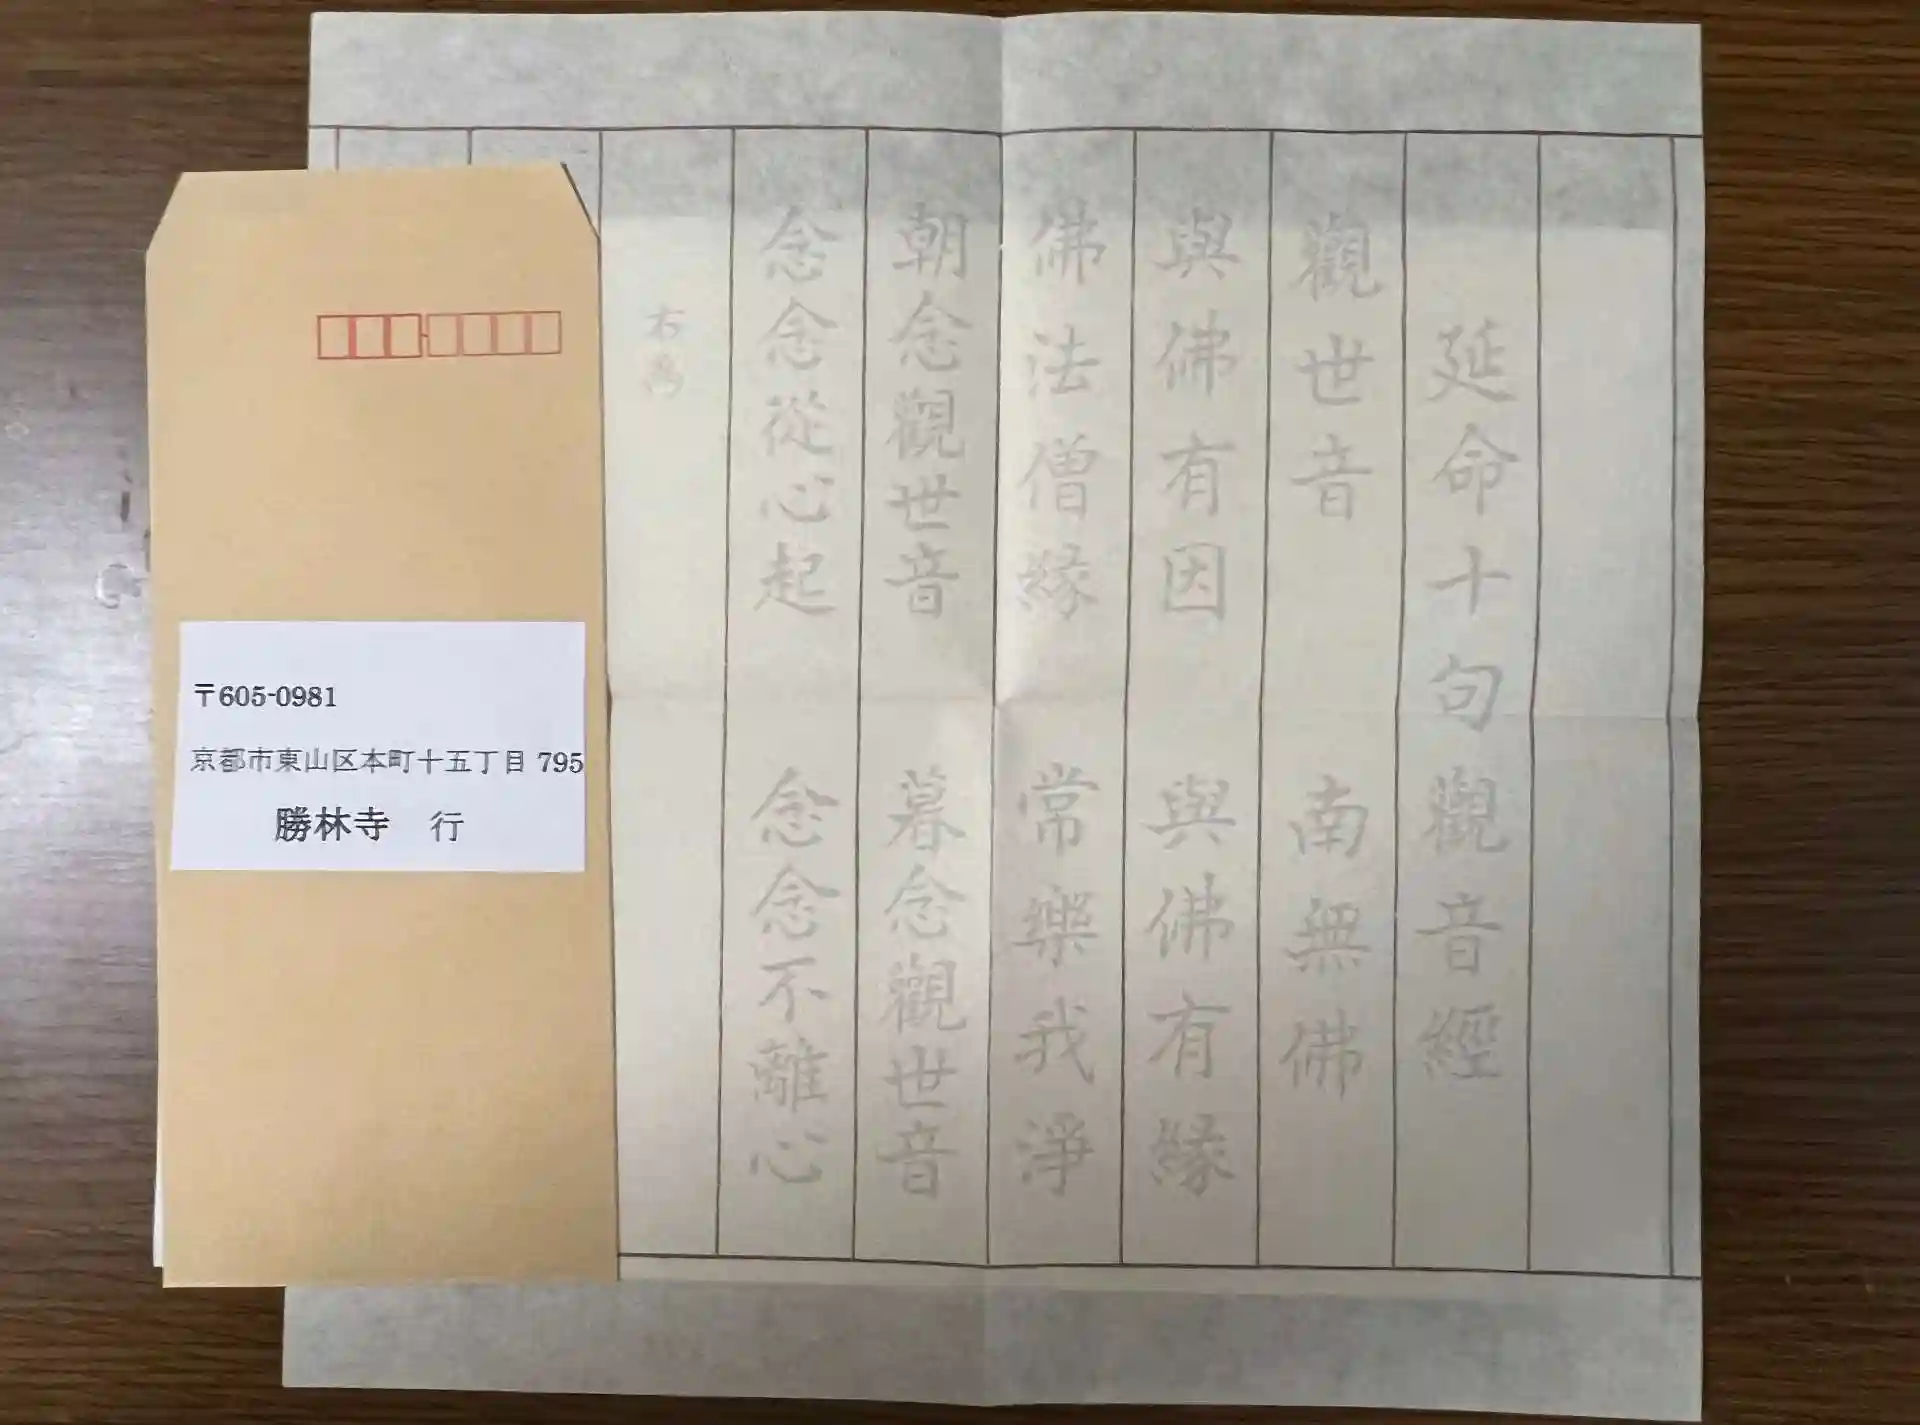 延命十句觀音經
觀世音　南無佛
與佛有因　與佛有緣
佛法僧緣　常樂我淨
朝念觀世音　暮念觀世音
念念從心起　念念不離心
右為
〒605-0981
京都市東山区本町十五丁目 795
勝林寺　行